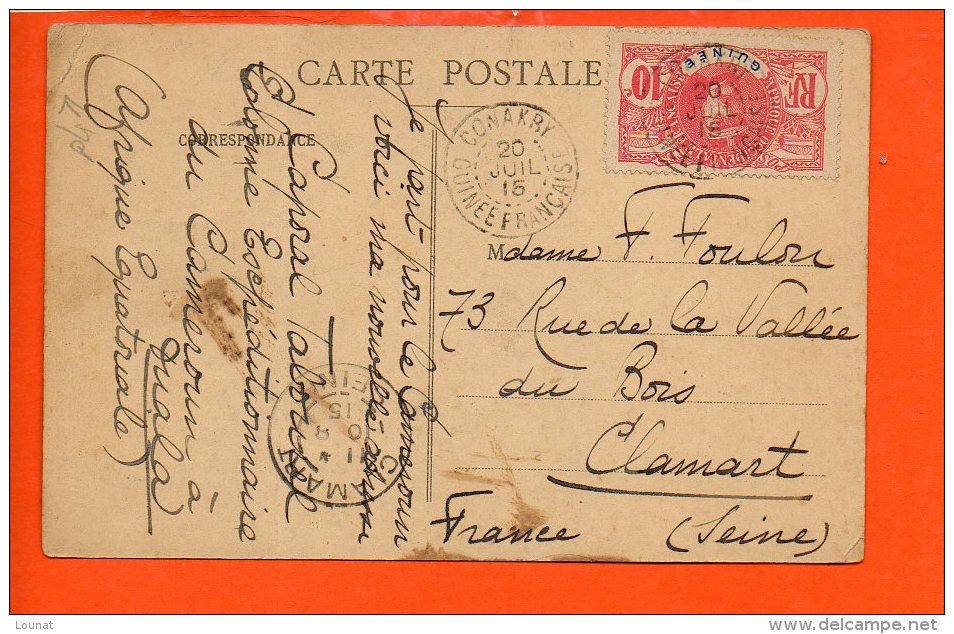 CARTE POSTALE
CORRESPONDANCE
Je part pour le Cameroun
voici ma nouvelle
Caporal Tabouel
Colonne Expéditionnaire
du Cameroun à
Duala
(Afrique Equatoriale)
CONAKRY
20
JUIL
15
GUINÉE FRANÇAISE
GUINÉE
RF
10
20
JUIL
15
Madame F. Foulon
73 Rue de la Vallée
du Bois
Clamart
France (Seine)
CLAMART
11 *
8
15
Lounat
delcampe.net